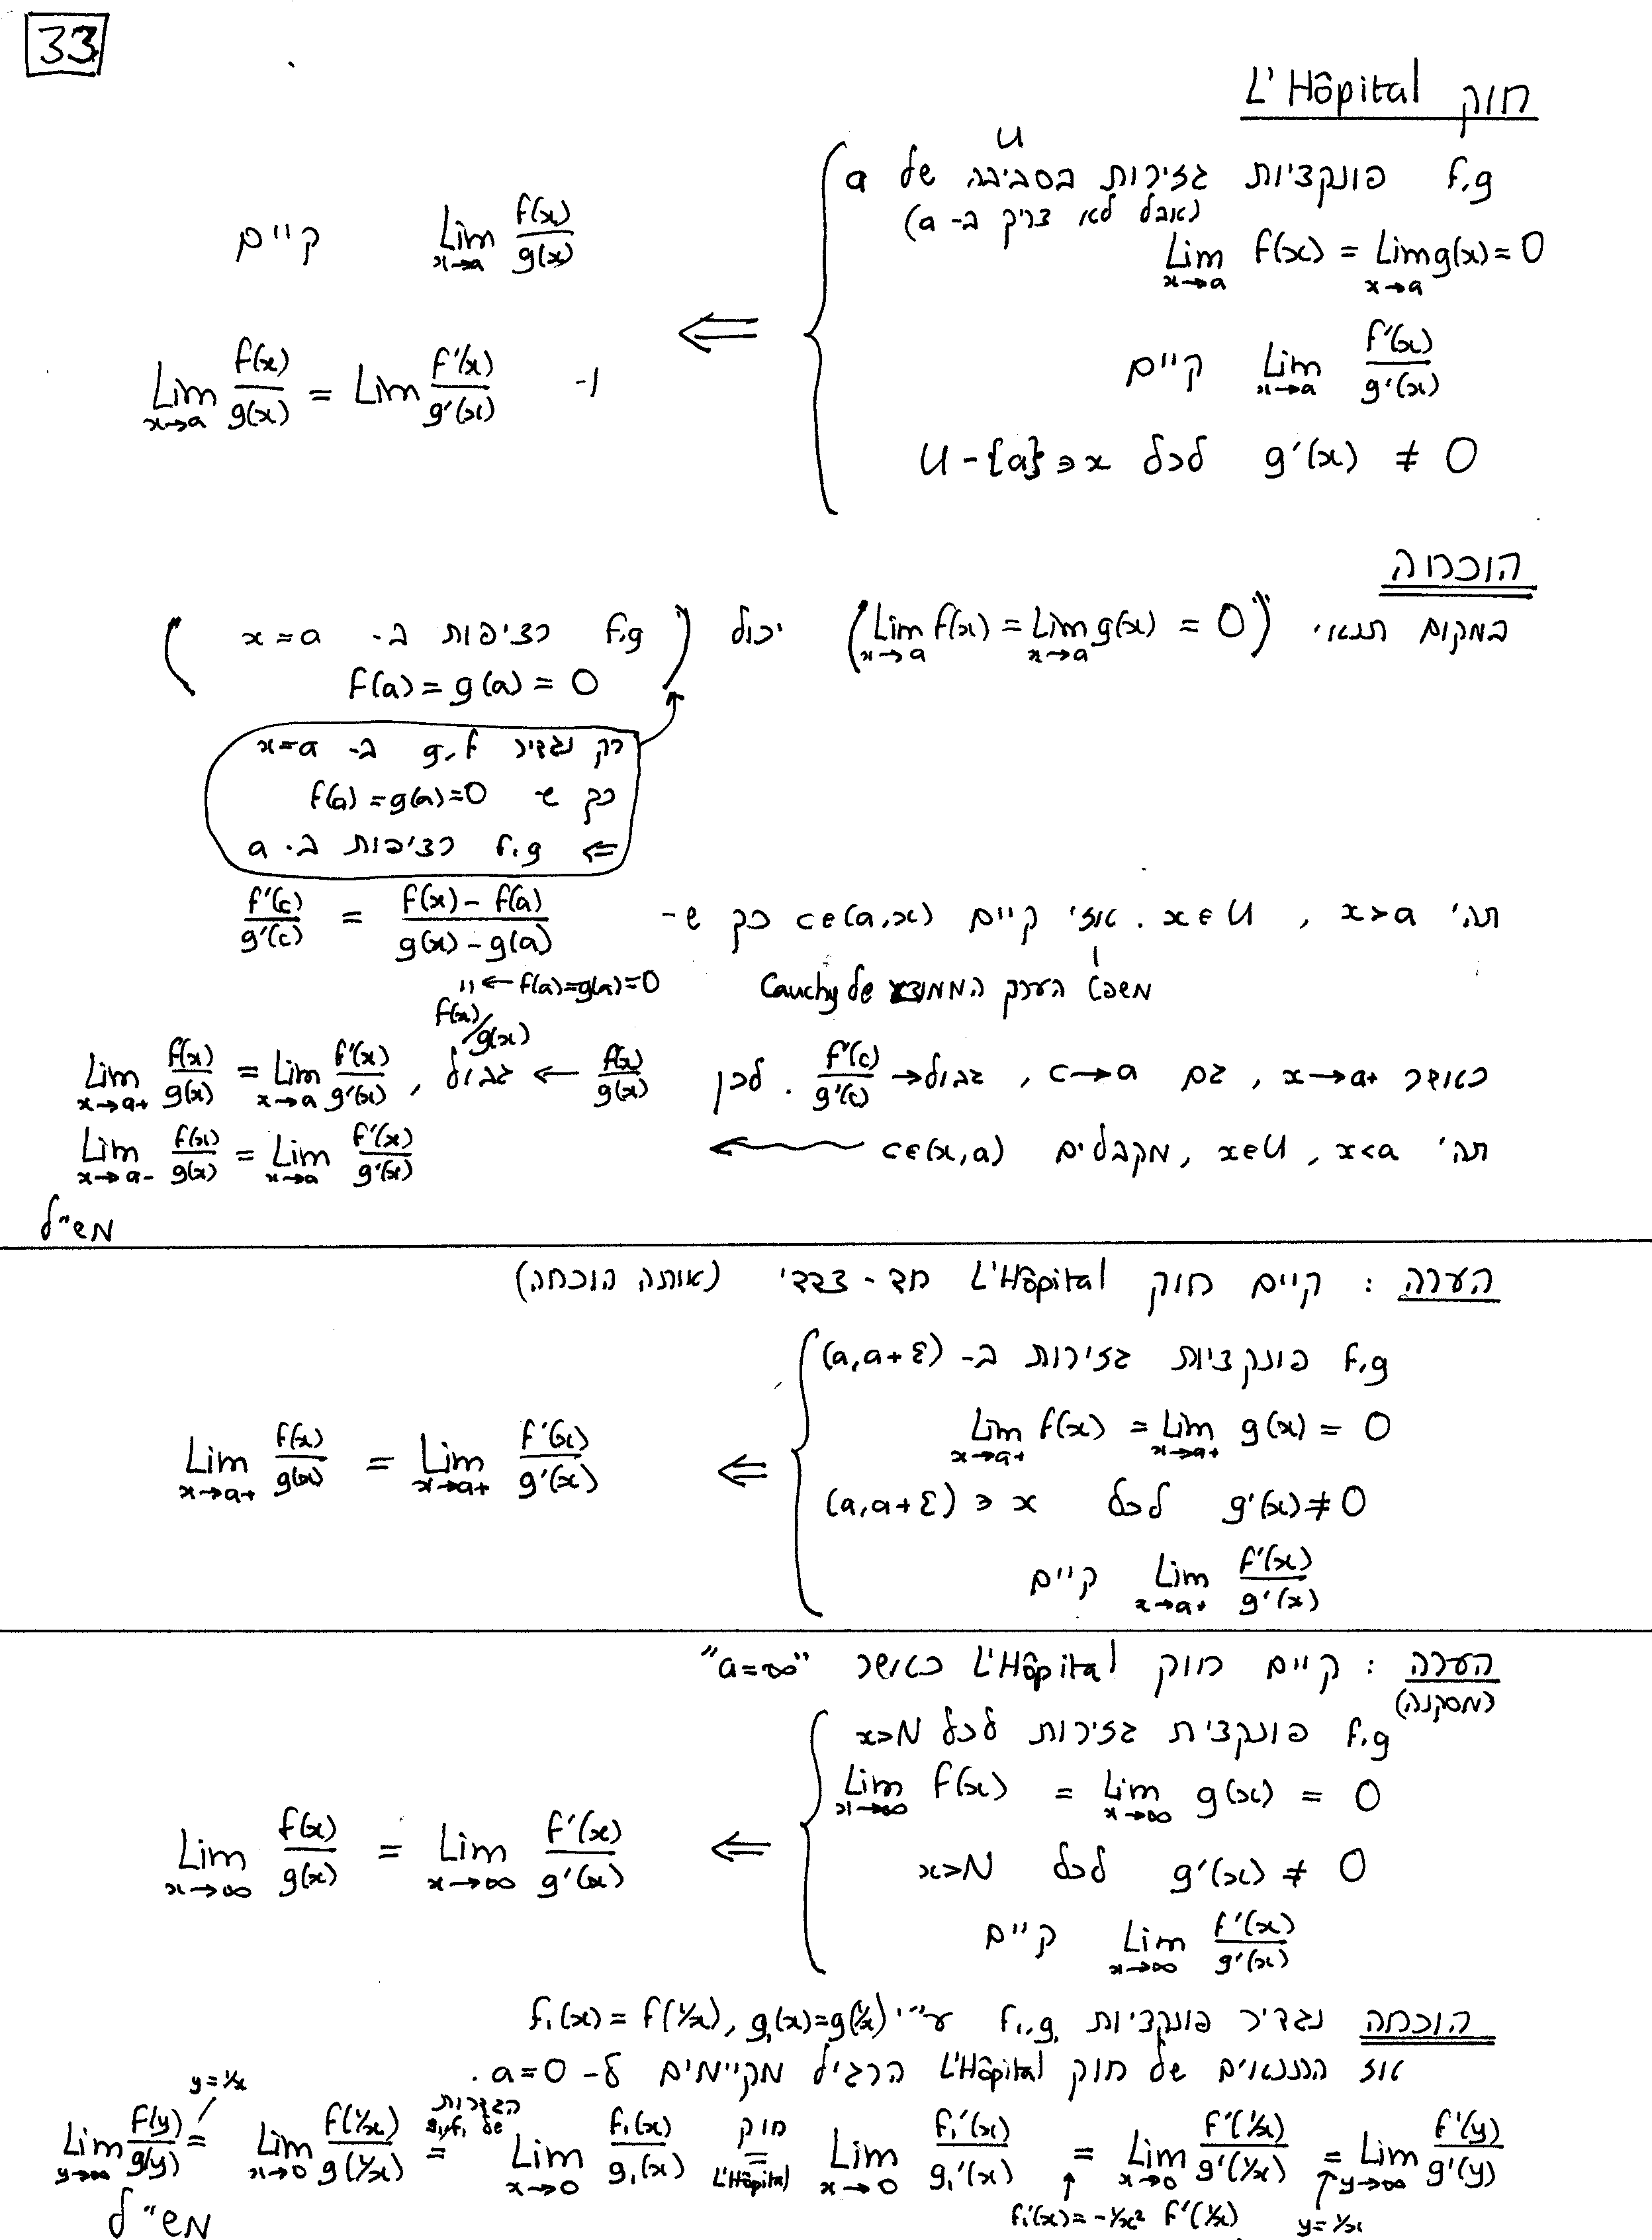 33
חוק L'Hôpital
f,g פונקציות גזירות בסביבה U של a
(אבל לא צריך ב- a)
Lim x→a f(x) = Lim x→a g(x) = 0
Lim x→a f'(x)/g'(x) קיים
g'(x) ≠ 0 לכל x ∈ U-{a}
⇐
Lim x→a f(x)/g(x) קיים
ו- Lim x→a f(x)/g(x) = Lim f'(x)/g'(x)
הוכחה
במקום תנאי (Lim x→a f(x) = Lim x→a g(x) = 0) יכול (f,g רציפות ב- x=a
f(a) = g(a) = 0)
רק נגדיר g,f ב- x=a
כך ש- f(a)=g(a)=0
⇐ f,g רציפות ב- a
תה' x>a , x∈U . אזי קיים c∈(a,x) כך ש- f'(c)/g'(c) = (f(x)-f(a))/(g(x)-g(a))
משפט הערך הממוצע של Cauchy
" ← f(a)=g(a)=0
f(x)/g(x)
כאשר x→a+ , גם c→a , f'(c)/g'(c) → גבול . לכן f(x)/g(x) → גבול , Lim x→a+ f(x)/g(x) = Lim x→a f'(x)/g'(x)
תה' x<a , x∈U , מקבלים c∈(x,a) Lim x→a- f(x)/g(x) = Lim x→a f'(x)/g'(x)
מש"ל
הערה : קיים חוק L'Hôpital חד - צדדי (אותה הוכחה)
f,g פונקציות גזירות ב- (a,a+ε)
Lim x→a+ f(x) = Lim x→a+ g(x) = 0
g'(x)≠0 לכל x ∈ (a,a+ε)
Lim x→a+ f'(x)/g'(x) קיים
⇐
Lim x→a+ f(x)/g(x) = Lim x→a+ f'(x)/g'(x)
הערה : קיים חוק L'Hôpital כאשר "a=∞"
(מסקנה)
f,g פונקצית גזירות לכל x>N
Lim x→∞ f(x) = Lim x→∞ g(x) = 0
g'(x) ≠ 0 לכל x>N
Lim x→∞ f'(x)/g'(x) קיים
⇐
Lim x→∞ f(x)/g(x) = Lim x→∞ f'(x)/g'(x)
הוכחה נגדיר פונקציות f₁,g₁ ע"י f₁(x) = f(1/x), g₁(x)=g(1/x)
אז התנאים של חוק L'Hôpital הרגיל מקיימים ל- a=0 .
y=1/x
הגדרות של g₁,f₁
חוק L'Hôpital
Lim y→∞ f(y)/g(y) = Lim x→0 f(1/x)/g(1/x) = Lim x→0 f₁(x)/g₁(x) = Lim x→0 f₁'(x)/g₁'(x) = Lim x→0 f'(1/x)/g'(1/x) = Lim y→∞ f'(y)/g'(y)
f₁'(x) = -1/x² f'(1/x)
y=1/x
מש"ל